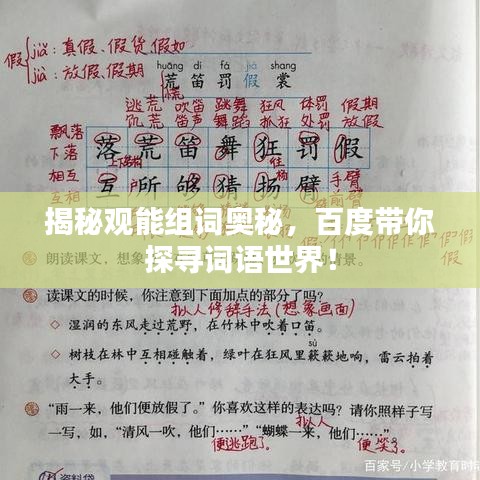 假 jiǎ：真假、假货 假如
jià：放假、假期
huāng dí fá jià shang
荒 笛 罚 假 裳
慌
逃荒 吹笛 跳舞 狂风 体罚 假期
饥荒 笛声 舞蹈 抓狂 处罚 放假
飘落
下落
相互
相互
落 荒 笛 舞 狂 罚 假
互 所 够 猜 扬 臂
手臂
揭秘观能组词奥秘，百度带你
探寻词语世界！
朗读课文，想象
读课文的时候，你注意到下面加点的部分了吗？
拟人修辞手法（想象画面）
◇ 湿润的东风走过荒野，在竹林中吹着口笛。
sù
◇ 树枝在林中互相碰触着，绿叶在狂风里簌簌地响，雷云拍着
大手。
“雨一来，他们便放假了。”你喜欢这样的表达吗？请你照样子写
拟人
一写，如，“清风一吹，他们……”“蝴蝶一来，他们……”
便逃跑了。 便笑了
资料袋
百家号/小学教育时